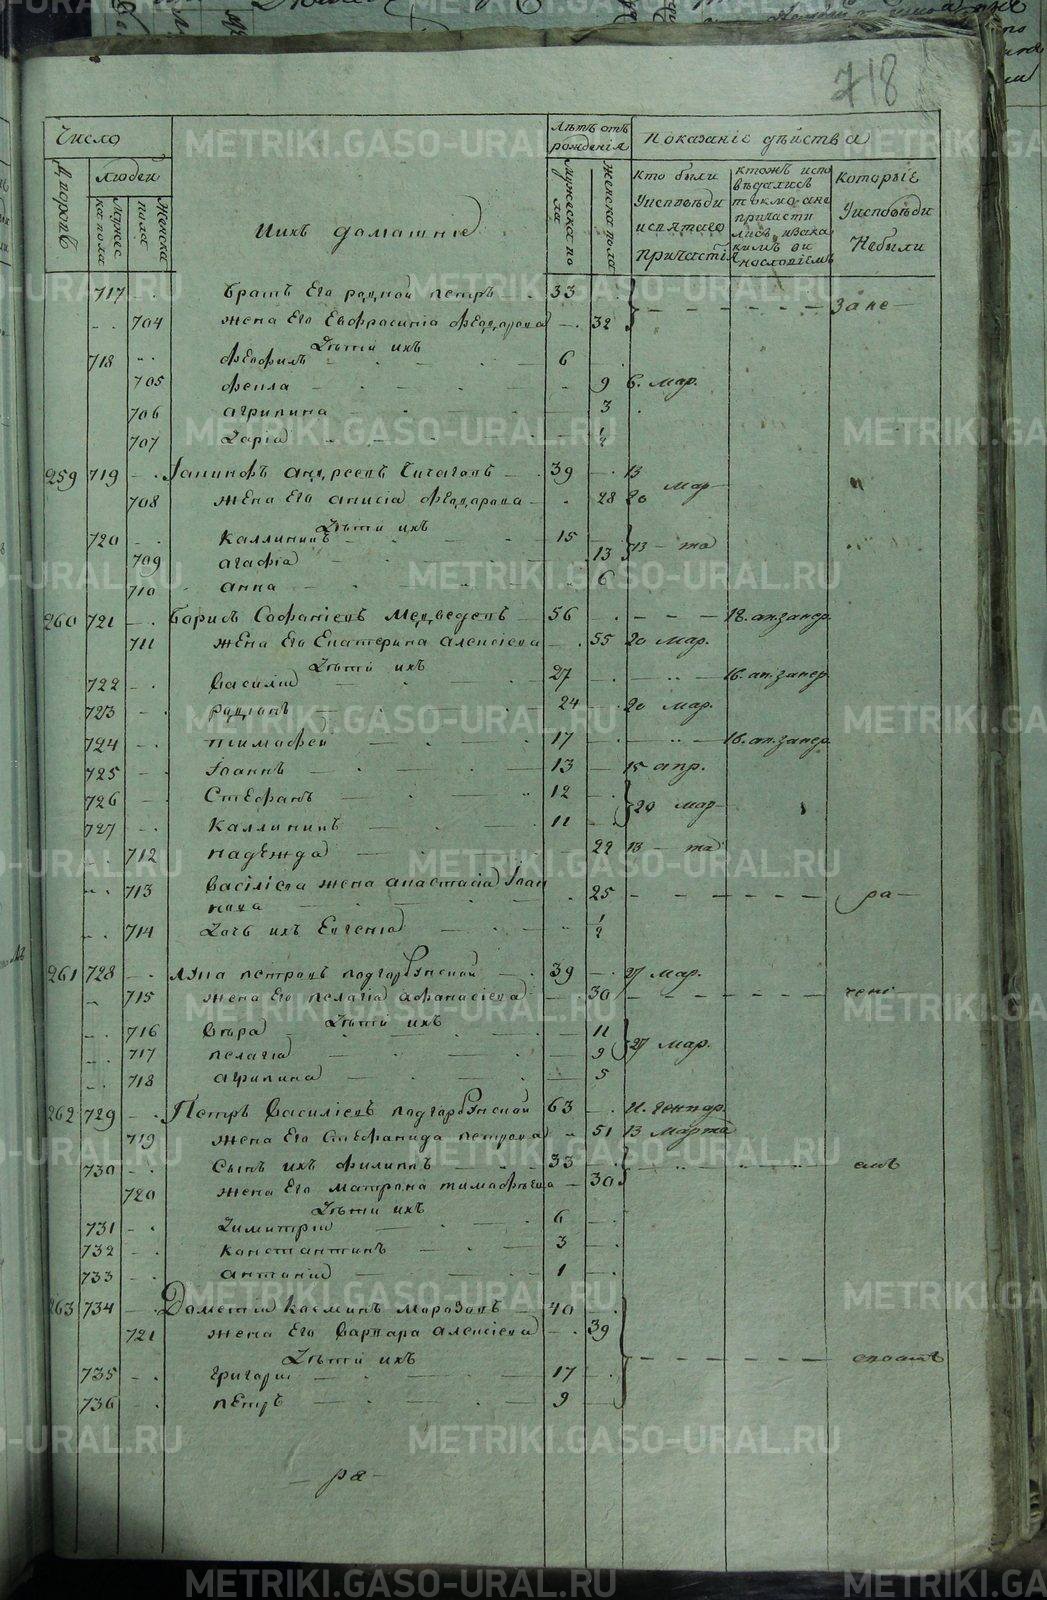 718
Число
Лѣтъ отъ рожденія
Показаніе дѣйства
Дворовъ
людей
Мужеска пола
Женска пола
Ихъ домашніе
мужеска пола
женска пола
кто были Уисповѣди исвятаго Причастія
ктожъ исповѣдались токмо ане причастились
Которые Уисповѣди Небыли
717 братъ Его родной петръ 33 Зане
704 жена Его Евфросинія 32
Дѣти ихъ
718 Феофилъ 6
705 Фекла 9 6. мар.
706 агрипина 3
707 Дарія 1/2
259 719 39 13
708 жена Его анисія 28 20 мар
Дѣти ихъ
720 Каллиникъ 15
709 агафіа 13 13 - та
710 анна 6
260 721 Борисъ Софаніевъ Медведевъ 56 18.
711 жена Его Екатерина алексіева 55 20 мар.
Дѣти ихъ
722 Василій 27 16.
723 родіонъ 24 20 мар.
724 тимофей 17 16.
725 Іоаннъ 13 15 апр.
726 Стефанъ 12
20 мар
727 Каллиникъ 11
712 надежда 22 13 - та
713 Васіліева жена анастасіа Іоаннова 25 ра
714 Дочь ихъ Евгеніа 1/2
261 728 лука петровъ подгорбунской 39 27 мар.
715 жена Его пелагіа афанасіева 30 чені
Дѣти ихъ
716 Вѣра 11
717 пелагіа 9 27 мар.
718 агрипина 5
262 729 Петръ Василіевъ подгорбунской 63
719 жена Его Стефанида петрова 51 13 марта
730 Сынъ ихъ филиппъ 33
720 жена Его матрона тимофѣева 30
Дѣти ихъ
731 Димитрій 6
732 Константинъ 3
733 антоній 1
263 734 Дометій Козминъ Морозовъ 40
721 жена Его Варвара алексіева 39
Дѣти ихъ
735 григорій 17
736 петръ 9
- ра -
METRIKI.GASO-URAL.RU